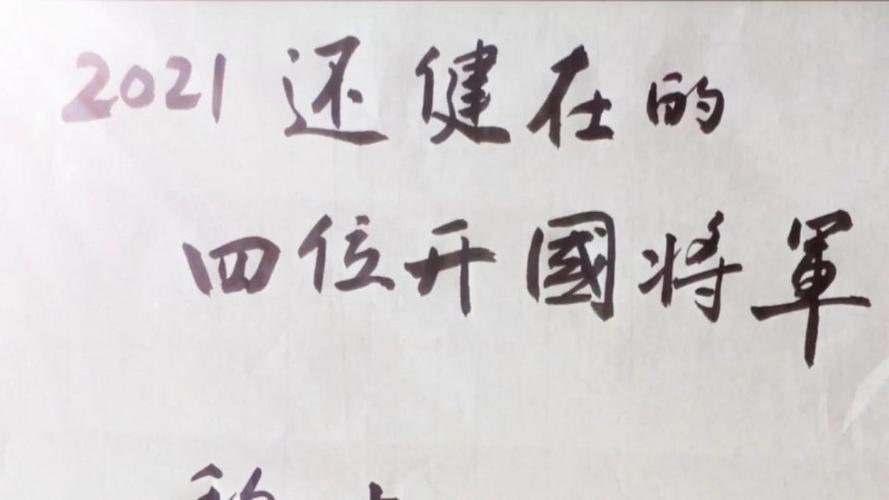 2021还健在的
四位开國将軍